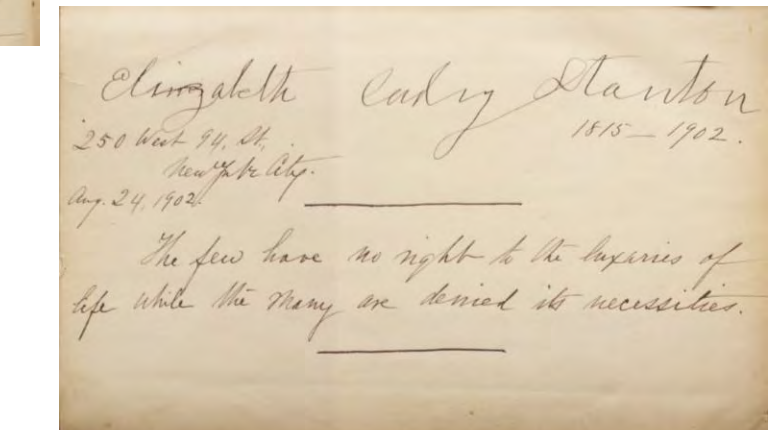 Elizabeth Cady Stanton
1815 – 1902.
250 West 94, St.,
New York City.
Aug. 24, 1902.
The few have no right to the luxuries of
life while the many are denied its necessities.